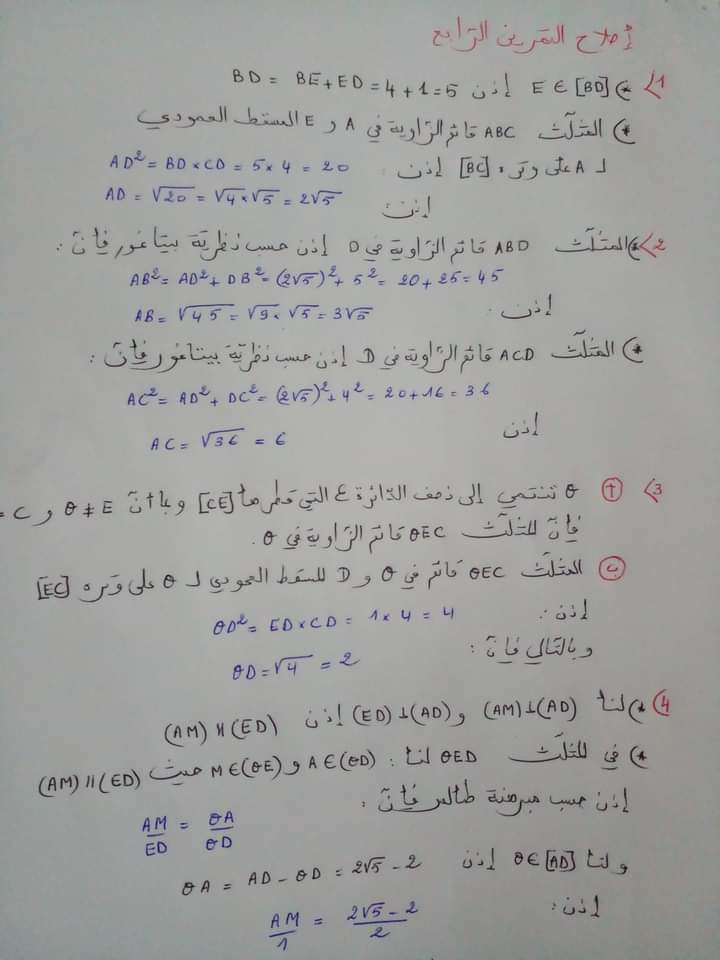 إصلاح التمرين الرابع
1> *) E ∈ [BD] إذن BD = BE + ED = 4 + 1 = 5
*) المثلّث ABC قائم الزّاوية في A و E المسقط العمودي
لـ A على وتره [BC] إذن : AD² = BD × CD = 5 × 4 = 20
إذن AD = √20 = √4 × √5 = 2√5
2> *) المثلّث ABD قائم الزّاوية في D إذن حسب نظريّة بيتاغور فإنّ :
AB² = AD² + DB² = (2√5)² + 5² = 20 + 25 = 45
إذن : AB = √45 = √9 × √5 = 3√5
*) المثلّث ACD قائم الزّاوية في D إذن حسب نظريّة بيتاغور فإنّ :
AC² = AD² + DC² = (2√5)² + 4² = 20 + 16 = 36
إذن AC = √36 = 6
3> أ) θ تنتمي إلى نصف الدّائرة ع التي قطرها [CE] وبما أنّ θ ≠ E و ≠ C
فإنّ المثلّث θEC قائم الزّاوية في θ.
ب) المثلّث θEC قائم في θ و D المسقط العمودي لـ θ على وتره [EC]
إذن : θD² = ED × CD = 1 × 4 = 4
وبالتالي فإنّ : θD = √4 = 2
4) *) لنا (AM) ⊥ (AD) و (ED) ⊥ (AD) إذن (AM) // (ED)
*) في المثلّث θED لنا : A ∈ (θD) و M ∈ (θE) حيث (AM) // (ED)
إذن حسب مبرهنة طالس فإنّ :
AM/ED = θA/θD
ولنا θ ∈ [AD] إذن θA = AD - θD = 2√5 - 2
إذن : AM/1 = (2√5 - 2)/2